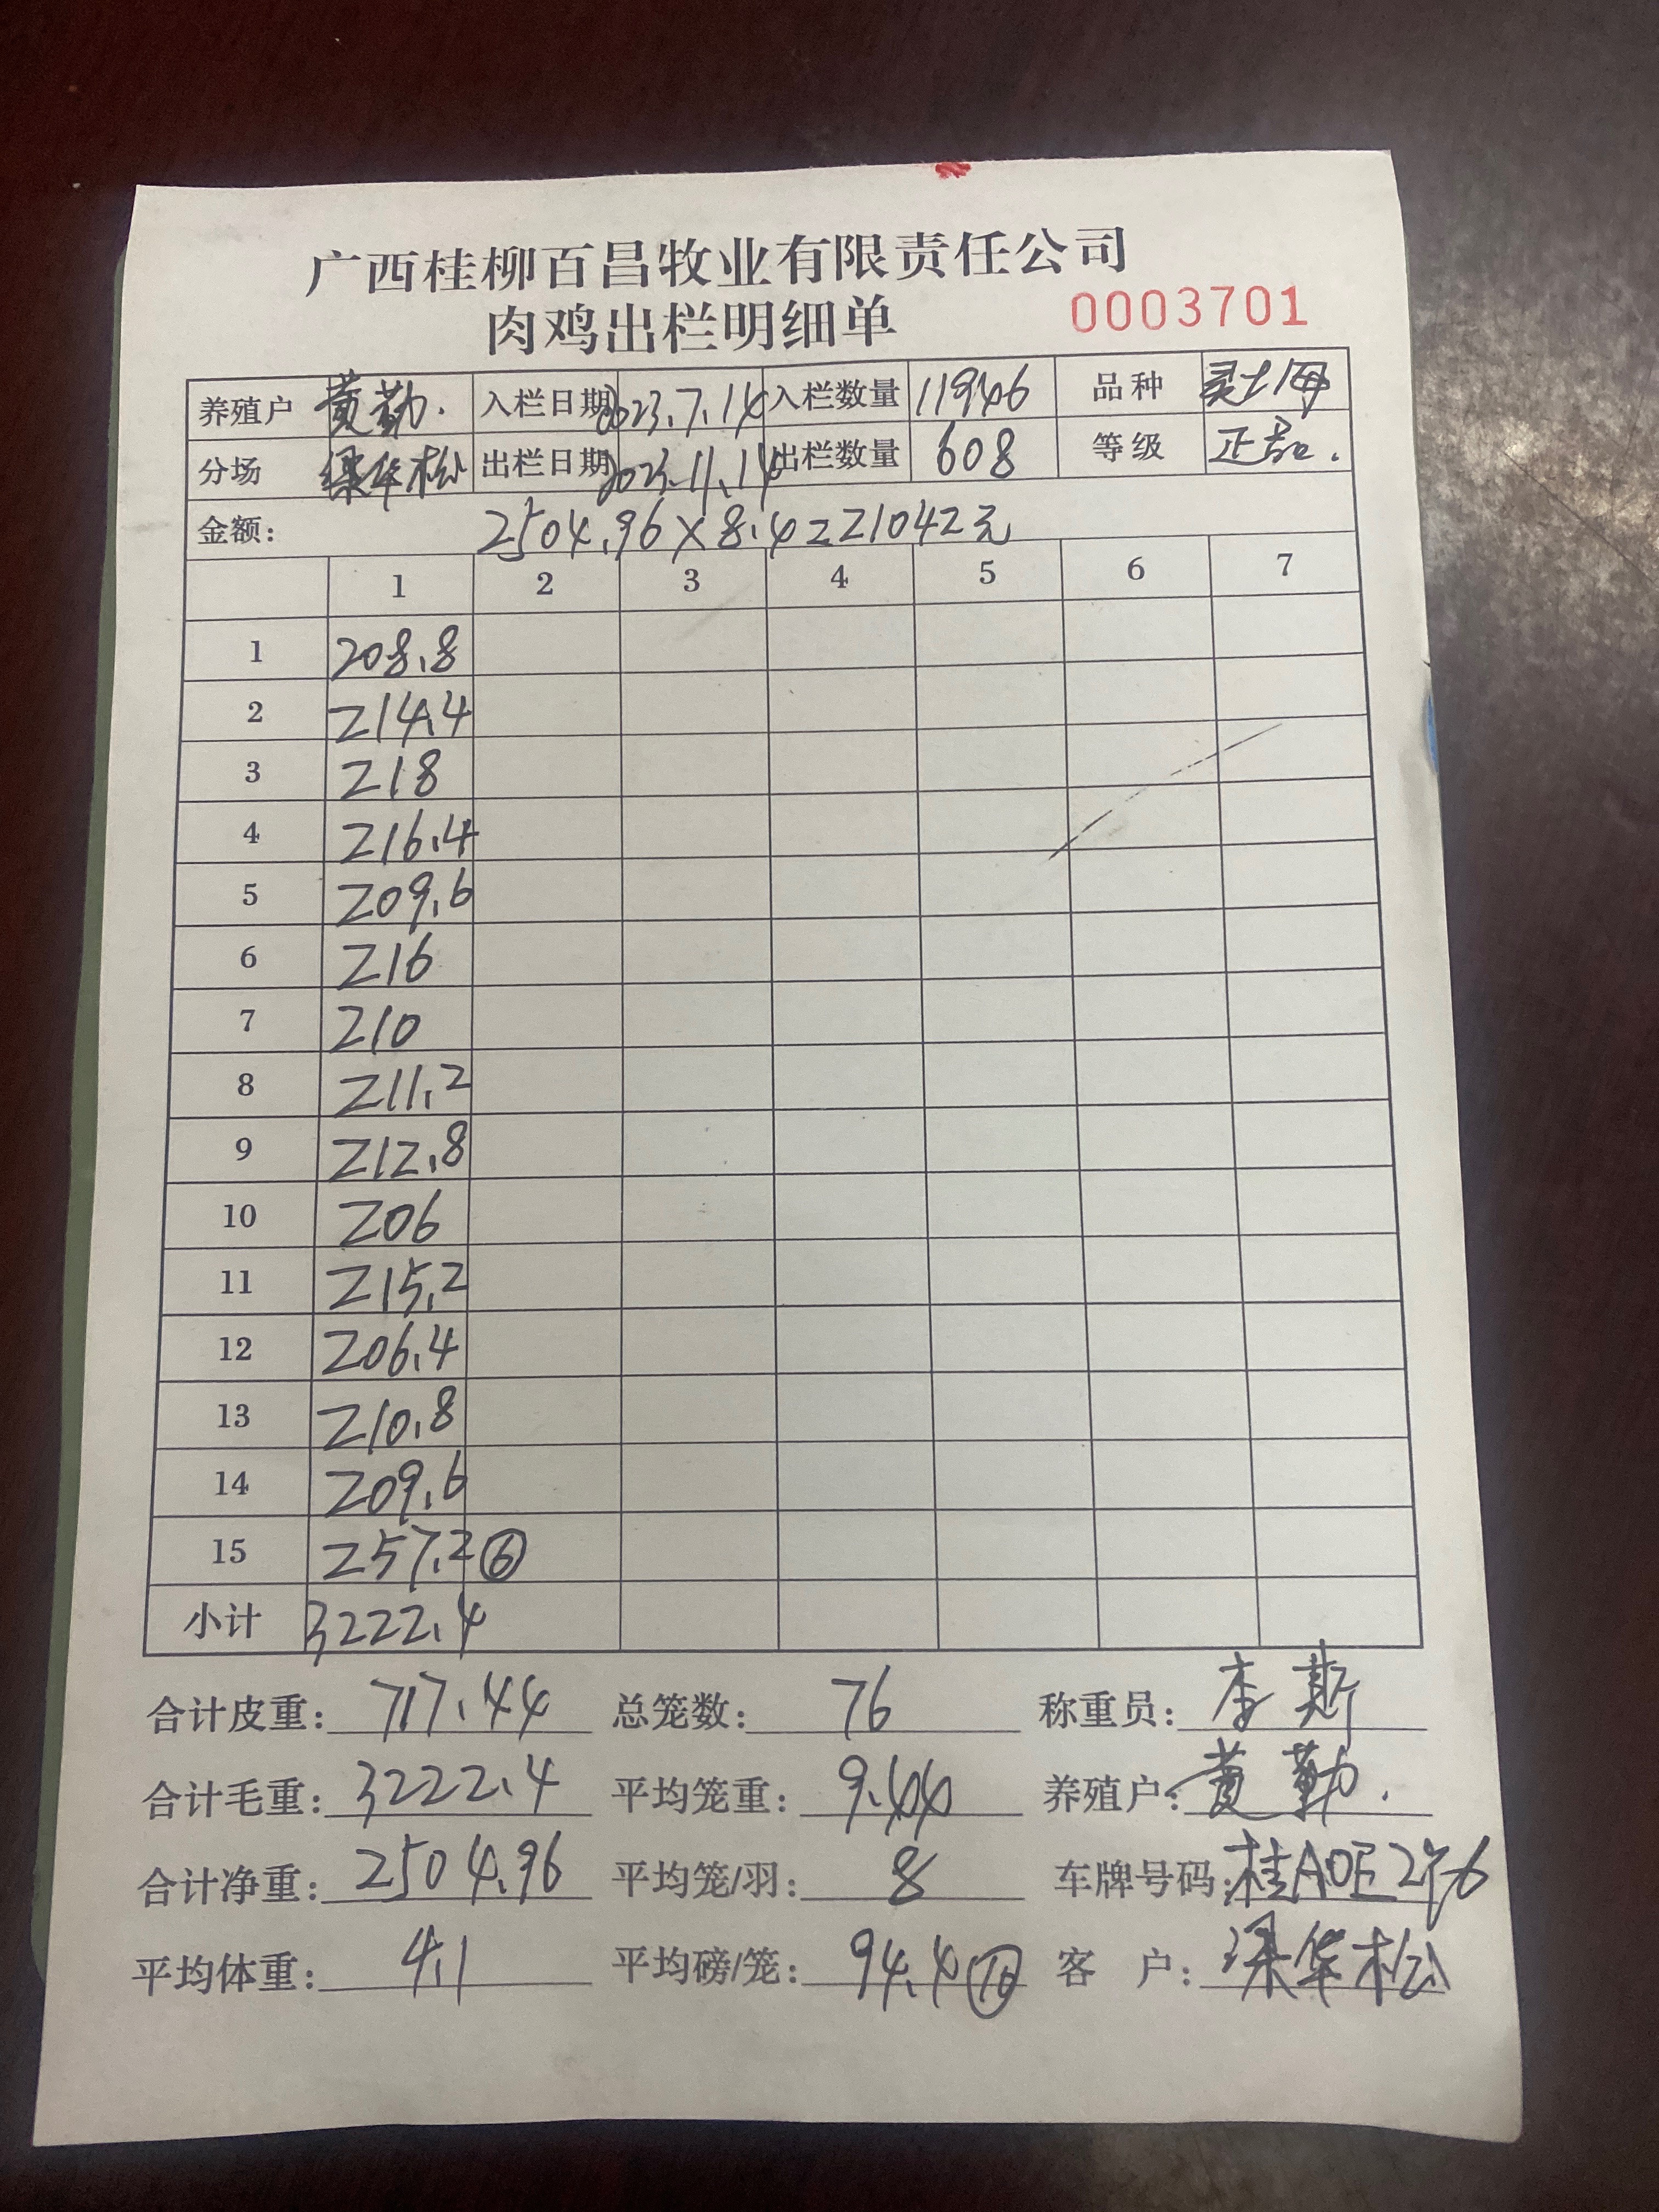 广西桂柳百昌牧业有限责任公司
肉鸡出栏明细单 0003701
养殖户 黄勤. 入栏日期 2023.7.14 入栏数量 11946 品种 灵土母
分场 梁华松 出栏日期 2023.11.14 出栏数量 608 等级 正品.
金额: 2504.96×8.4=21042元
1 2 3 4 5 6 7
1 208.8
2 214.4
3 218
4 216.4
5 209.6
6 216
7 210
8 211.2
9 212.8
10 206
11 215.2
12 206.4
13 210.8
14 209.6
15 257.2 ⑥
小计 3222.4
合计皮重: 717.44 总笼数: 76 称重员: 李斯
合计毛重: 3222.4 平均笼重: 9.44 养殖户: 黄勤.
合计净重: 2504.96 平均笼/羽: 8 车牌号码: 桂A0E2
平均体重: 4.1 平均磅/笼: 94.4 ⑩ 客 户: 梁华松